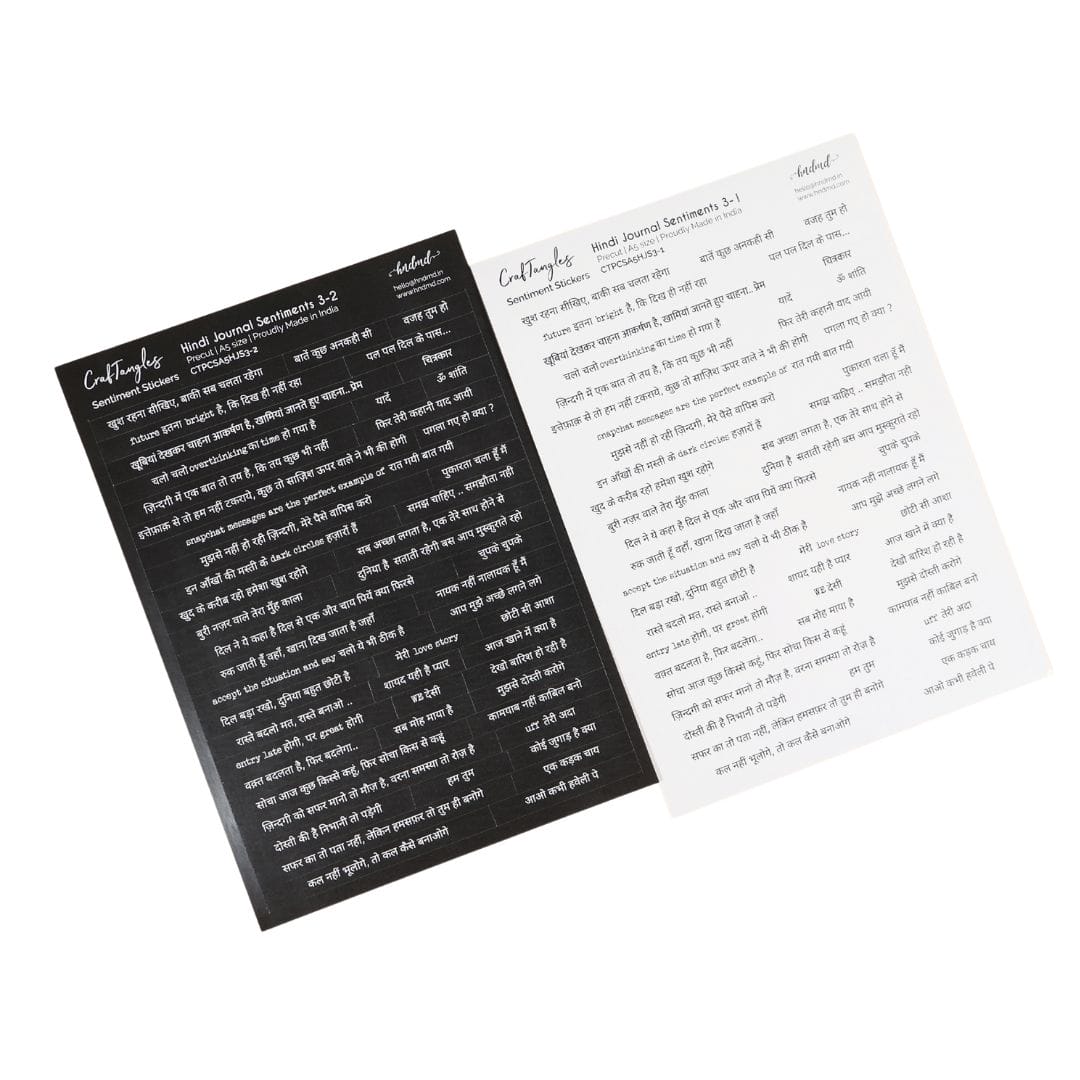 CrafTangles
Sentiment Stickers
Hindi Journal Sentiments 3-2
Precut | A5 size | Proudly Made in India
CTPCSA5HJS3-2
hndmd
hello@hndmd.in
www.hndmd.com
खुश रहना सीखिए, बाकी सब चलता रहेगा
बातें कुछ अनकही सी
वजह तुम हो
future इतना bright है, कि दिख ही नहीं रहा
पल पल दिल के पास...
खूबियां देखकर चाहना आकर्षण है, खामियां जानते हुए चाहना.. प्रेम
चित्रकार
चलो चलो overthinking का time हो गया है
यादें
ॐ शांति
ज़िन्दगी में एक बात तो तय है, कि तय कुछ भी नहीं
फिर तेरी कहानी याद आयी
इत्तेफ़ाक़ से तो हम नहीं टकराये, कुछ तो साज़िश ऊपर वाले ने भी की होगी
पगला गए हो क्या ?
snapchat messages are the perfect example of रात गयी बात गयी
मुझसे नहीं हो रही ज़िन्दगी, मेरे पैसे वापिस करो
पुकारता चला हूँ मैं
इन आँखों की मस्ती के dark circles हज़ारों हैं
समझ चाहिए .. समझौता नही
खुद के करीब रहो हमेशा खुश रहोगे
सब अच्छा लगता है, एक तेरे साथ होने से
बुरी नज़र वाले तेरा मुँह काला
दुनिया है सताती रहेगी बस आप मुस्कुराते रहो
दिल ने ये कहा है दिल से एक और चाय पियें क्या फिरसे
चुपके चुपके
रुक जाती हूँ वहाँ, खाना दिख जाता है जहाँ
नायक नहीं नालायक हूँ मैं
accept the situation and say चलो ये भी ठीक है
आप मुझे अच्छे लगने लगे
दिल बड़ा रखो, दुनिया बहुत छोटी है
मेरी love story
छोटी सी आशा
रास्ते बदलो मत, रास्ते बनाओ ..
शायद यही है प्यार
आज खाने में क्या है
entry late होगी, पर great होगी
WE देसी
देखो बारिश हो रही है
वक़्त बदलता है, फिर बदलेगा..
सब मोह माया है
मुझसे दोस्ती करोगे
सोचा आज कुछ किस्से कहूं, फिर सोचा किस से कहूं
कामयाब नहीं काबिल बनो
ज़िन्दगी को सफर मानो तो मौज़ है, वरना समस्या तो रोज़ है
uff तेरी अदा
दोस्ती की है निभानी तो पड़ेगी
हम तुम
कोई जुगाड़ है क्या
सफर का तो पता नहीं, लेकिन हमसफ़र तो तुम ही बनोगे
एक कड़क चाय
कल नहीं भूलोगे, तो कल कैसे बनाओगे
आओ कभी हवेली पे
CrafTangles
Sentiment Stickers
Hindi Journal Sentiments 3-1
Precut | A5 size | Proudly Made in India
CTPCSA5HJS3-1
hndmd
hello@hndmd.in
www.hndmd.com
खुश रहना सीखिए, बाकी सब चलता रहेगा
बातें कुछ अनकही सी
वजह तुम हो
future इतना bright है, कि दिख ही नहीं रहा
पल पल दिल के पास...
खूबियां देखकर चाहना आकर्षण है, खामियां जानते हुए चाहना.. प्रेम
चित्रकार
चलो चलो overthinking का time हो गया है
यादें
ॐ शांति
ज़िन्दगी में एक बात तो तय है, कि तय कुछ भी नहीं
फिर तेरी कहानी याद आयी
इत्तेफ़ाक़ से तो हम नहीं टकराये, कुछ तो साज़िश ऊपर वाले ने भी की होगी
पगला गए हो क्या ?
snapchat messages are the perfect example of रात गयी बात गयी
मुझसे नहीं हो रही ज़िन्दगी, मेरे पैसे वापिस करो
पुकारता चला हूँ मैं
इन आँखों की मस्ती के dark circles हज़ारों हैं
समझ चाहिए .. समझौता नही
खुद के करीब रहो हमेशा खुश रहोगे
सब अच्छा लगता है, एक तेरे साथ होने से
बुरी नज़र वाले तेरा मुँह काला
दुनिया है सताती रहेगी बस आप मुस्कुराते रहो
दिल ने ये कहा है दिल से एक और चाय पियें क्या फिरसे
चुपके चुपके
रुक जाती हूँ वहाँ, खाना दिख जाता है जहाँ
नायक नहीं नालायक हूँ मैं
accept the situation and say चलो ये भी ठीक है
आप मुझे अच्छे लगने लगे
दिल बड़ा रखो, दुनिया बहुत छोटी है
मेरी love story
छोटी सी आशा
रास्ते बदलो मत, रास्ते बनाओ ..
शायद यही है प्यार
आज खाने में क्या है
entry late होगी, पर great होगी
WE देसी
देखो बारिश हो रही है
वक़्त बदलता है, फिर बदलेगा..
सब मोह माया है
मुझसे दोस्ती करोगे
सोचा आज कुछ किस्से कहूं, फिर सोचा किस से कहूं
कामयाब नहीं काबिल बनो
ज़िन्दगी को सफर मानो तो मौज़ है, वरना समस्या तो रोज़ है
uff तेरी अदा
दोस्ती की है निभानी तो पड़ेगी
हम तुम
कोई जुगाड़ है क्या
सफर का तो पता नहीं, लेकिन हमसफ़र तो तुम ही बनोगे
एक कड़क चाय
कल नहीं भूलोगे, तो कल कैसे बनाओगे
आओ कभी हवेली पे